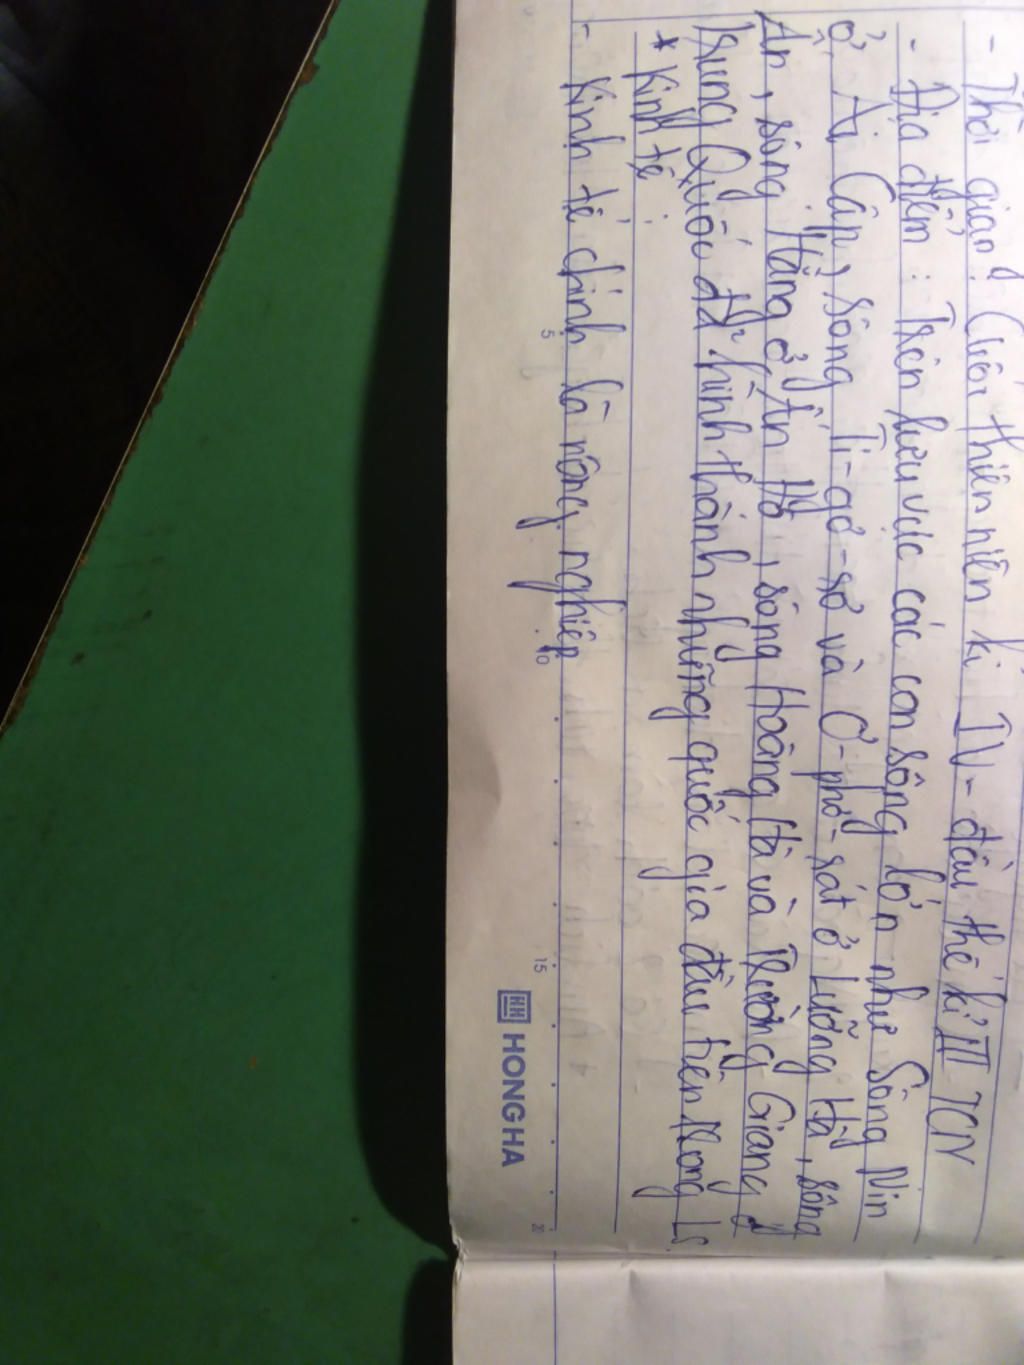 - Thời gian: Cuối thiên niên kỉ IV - đầu thế kỉ III TCN
- Địa điểm: Trên lưu vực các con sông lớn như Sông Nin
ở Ai Cập, sông Ti-gơ-rơ và Ơ-phơ-rát ở Lưỡng Hà, sông
Ấn, sông Hằng ở Ấn Độ, sông Hoàng Hà và Trường Giang ở
Trung Quốc đã hình thành những quốc gia đầu tiên trong LS.
* Kinh tế:
- Kinh tế chính là nông nghiệp
5
10
15
20
HH HONG HA